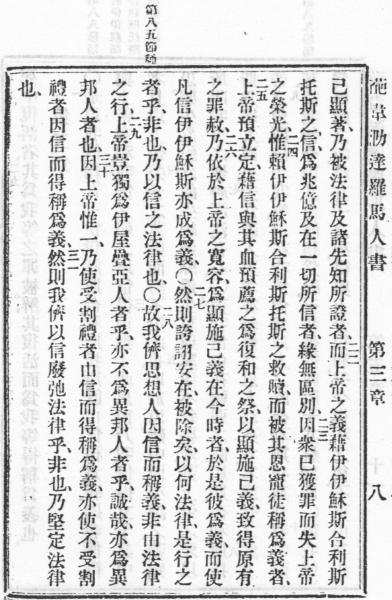 葩韋泐達羅馬人書 第三章 八
己顯著乃被法律及諸先知所證者、二二而上帝之義藉伊伊穌斯合利斯
托斯之信、為兆億及在一切所信者、緣無區別、二三因衆已獲罪而失上帝
之榮光、二四惟賴伊伊穌斯合利斯托斯之救贖、而被其恩寵、徒稱為義者、
二五上帝預立定藉信與其血預薦之為復和之祭、以顯施己義、致得原有
之罪赦、二六乃依於上帝之寬容、為顯施己義在今時者、於是彼為義、而使
凡信伊伊穌斯亦成為義、○二七然則誇詡安在、被除矣、以何法律、是行之
者乎、非也、乃以信之法律也、○二八故我儕思想人因信而稱義、非由法律
之行、二九上帝豈獨為伊屋疊亞人者乎、亦不為異邦人者乎、誠哉亦為異
邦人者也、三十因上帝惟一、乃使受割禮者由信而得稱為義、亦使不受割
禮者因信而得稱為義、三一然則我儕以信廢弛法律乎、非也、乃堅定法律
也、
第八五節誦